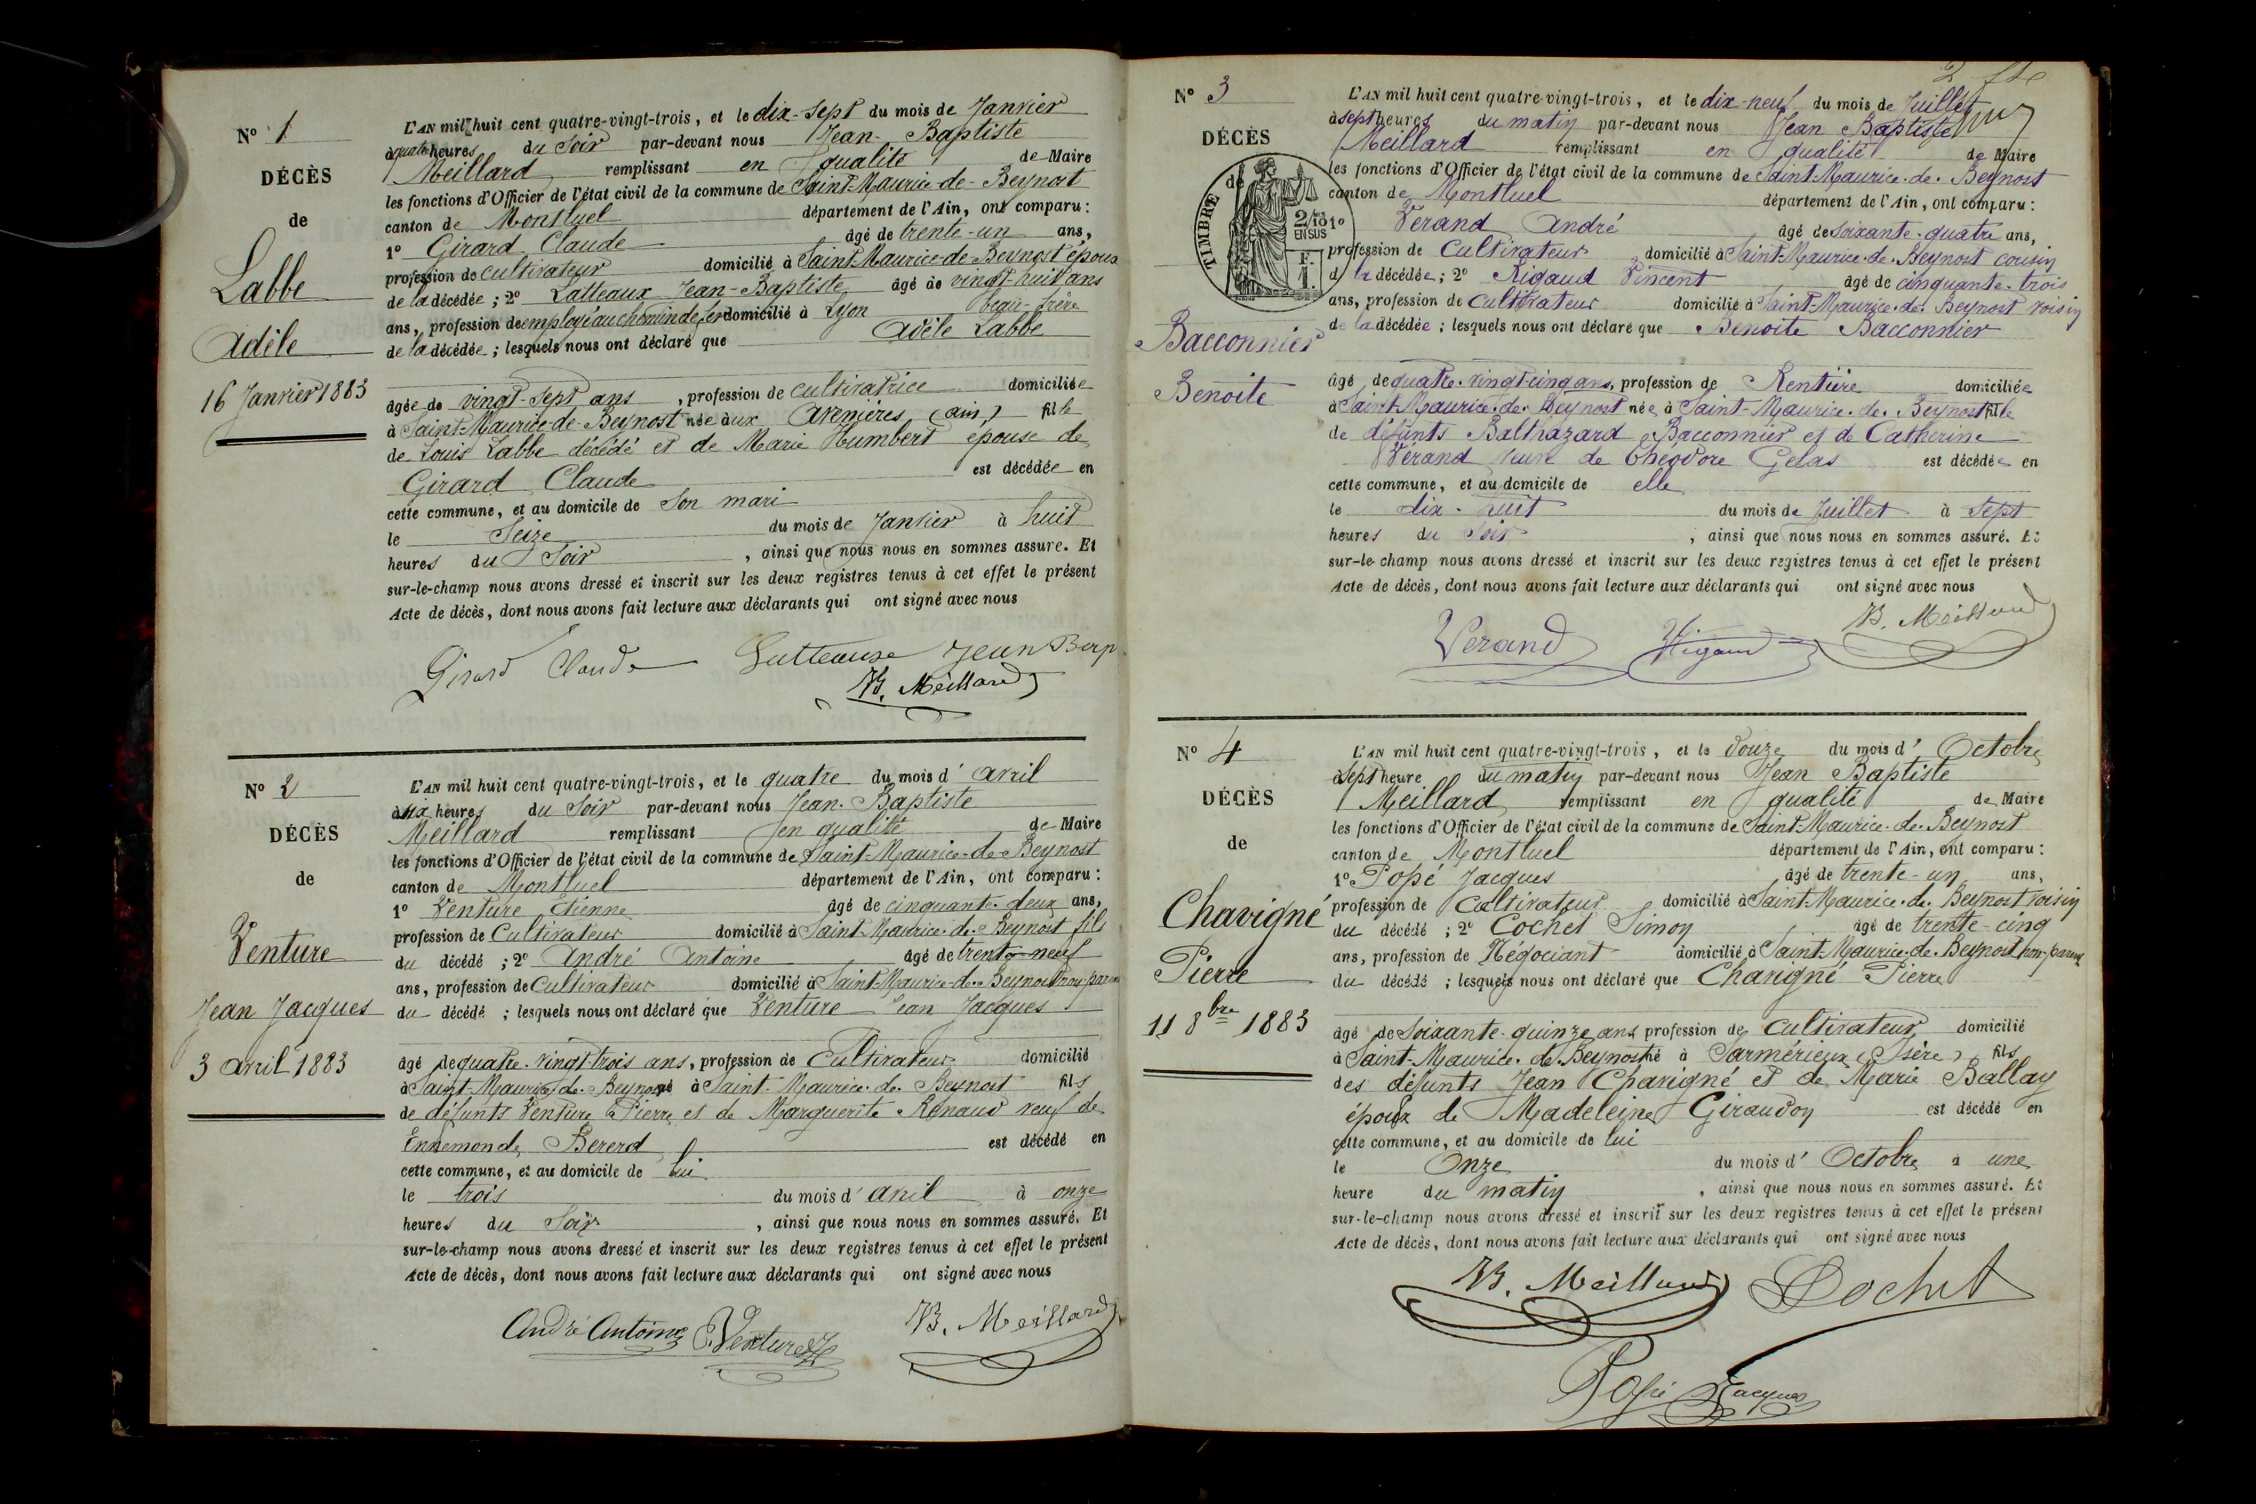 N° 1
DÉCÈS
de
Labbe
Adèle
16 Janvier 1883
L'AN mil huit cent quatre-vingt-trois, et le dix-sept du mois de Janvier
à quatre heures du Soir par-devant nous Jean-Baptiste
Meillard remplissant en qualité de Maire
les fonctions d'Officier de l'état civil de la commune de Saint-Maurice-de-Beynost
canton de Montluel département de l'Ain, ont comparu :
1° Girard Claude âgé de trente-un ans,
profession de cultivateur domicilié à Saint-Maurice-de-Beynost époux
de la décédée ; 2° Latteaux Jean-Baptiste âgé de vingt-huit ans
ans, profession de employé au chemin de fer domicilié à Lyon beau-frère
de la décédée ; lesquels nous ont déclaré que Adèle Labbe
âgée de vingt-sept ans, profession de cultivatrice domiciliée
à Saint-Maurice-de-Beynost née aux Avenières (ain) fille
de Louis Labbe décédé et de Marie Humbert épouse de
Girard Claude est décédée en
cette commune, et au domicile de son mari
le Seize du mois de Janvier à huit
heures du Soir, ainsi que nous nous en sommes assuré. Et
sur-le-champ nous avons dressé et inscrit sur les deux registres tenus à cet effet le présent
Acte de décès, dont nous avons fait lecture aux déclarants qui ont signé avec nous
Girard Claude Jean
JB. Meillard
N° 2
DÉCÈS
de
Venture
Jean Jacques
3 avril 1883
L'AN mil huit cent quatre-vingt-trois, et le quatre du mois d'avril
à six heures du Soir par-devant nous Jean-Baptiste
Meillard remplissant en qualité de Maire
les fonctions d'Officier de l'état civil de la commune de Saint-Maurice-de-Beynost
canton de Montluel département de l'Ain, ont comparu :
1° Venture Etienne âgé de cinquante-deux ans,
profession de Cultivateur domicilié à Saint-Maurice-de-Beynost fils
du décédé ; 2° André Antoine âgé de trente-neuf
ans, profession de Cultivateur domicilié à Saint-Maurice-de-Beynost non parent
du décédé ; lesquels nous ont déclaré que Venture Jean Jacques
âgé de quatre-vingt trois ans, profession de Cultivateur domicilié
à Saint-Maurice-de-Beynost né à Saint-Maurice-de-Beynost fils
de défunts Venture Pierre et de Marguerite Renaud veuf de
Ennemonde Bererd est décédé en
cette commune, et au domicile de lui
le trois du mois d'avril à onze
heures du Soir, ainsi que nous nous en sommes assuré. Et
sur-le-champ nous avons dressé et inscrit sur les deux registres tenus à cet effet le présent
Acte de décès, dont nous avons fait lecture aux déclarants qui ont signé avec nous
André Antoine Venture JB. Meillard
N° 3
DÉCÈS
de
TIMBRE
2/10 EN SUS
F. 1.
Bacconnier
Benoite
L'AN mil huit cent quatre-vingt-trois, et le dix-neuf du mois de Juillet
à sept heures du matin par-devant nous Jean Baptiste
Meillard remplissant en qualité de Maire
les fonctions d'Officier de l'état civil de la commune de Saint-Maurice-de-Beynost
canton de Montluel département de l'Ain, ont comparu :
1° Verand André âgé de soixante-quatre ans,
profession de Cultivateur domicilié à Saint-Maurice-de-Beynost cousin
de la décédée ; 2° Rigaud Vincent âgé de cinquante-trois
ans, profession de Cultivateur domicilié à Saint-Maurice-de-Beynost voisin
de la décédée ; lesquels nous ont déclaré que Benoite Bacconnier
âgé de quatre-vingt-cinq ans, profession de Rentière domiciliée
à Saint-Maurice-de-Beynost née à Saint-Maurice-de-Beynost fille
de défunts Balthazard Bacconnier et de Catherine
Vérand veuve de Théodore Gelas est décédée en
cette commune, et au domicile de elle
le dix-huit du mois de Juillet à Sept
heures du Soir, ainsi que nous nous en sommes assuré. Et
sur-le-champ nous avons dressé et inscrit sur les deux registres tenus à cet effet le présent
Acte de décès, dont nous avons fait lecture aux déclarants qui ont signé avec nous
Verand Rigaud JB. Meillard
N° 4
DÉCÈS
de
Chavigné
Pierre
11 8bre 1883
L'AN mil huit cent quatre-vingt-trois, et le douze du mois d'Octobre
à sept heure du matin par-devant nous Jean Baptiste
Meillard remplissant en qualité de Maire
les fonctions d'Officier de l'état civil de la commune de Saint-Maurice-de-Beynost
canton de Montluel département de l'Ain, ont comparu :
1° Popé Jacques âgé de trente-un ans,
profession de Cultivateur domicilié à Saint-Maurice-de-Beynost voisin
du décédé ; 2° Cochet Simon âgé de trente-cinq
ans, profession de Négociant domicilié à Saint-Maurice-de-Beynost non-parent
du décédé ; lesquels nous ont déclaré que Chavigné Pierre
âgé de Soixante-quinze ans profession de Cultivateur domicilié
à Saint-Maurice-de-Beynost né à Sarmérieux (Isère) fils
des défunts Jean Chavigné et de Marie Ballay
époux de Madeleine Giraudon est décédé en
cette commune, et au domicile de lui
le Onze du mois d'Octobre à une
heure du matin, ainsi que nous nous en sommes assuré. Et
sur-le-champ nous avons dressé et inscrit sur les deux registres tenus à cet effet le présent
Acte de décès, dont nous avons fait lecture aux déclarants qui ont signé avec nous
JB. Meillard Cochet
Popé Jacques